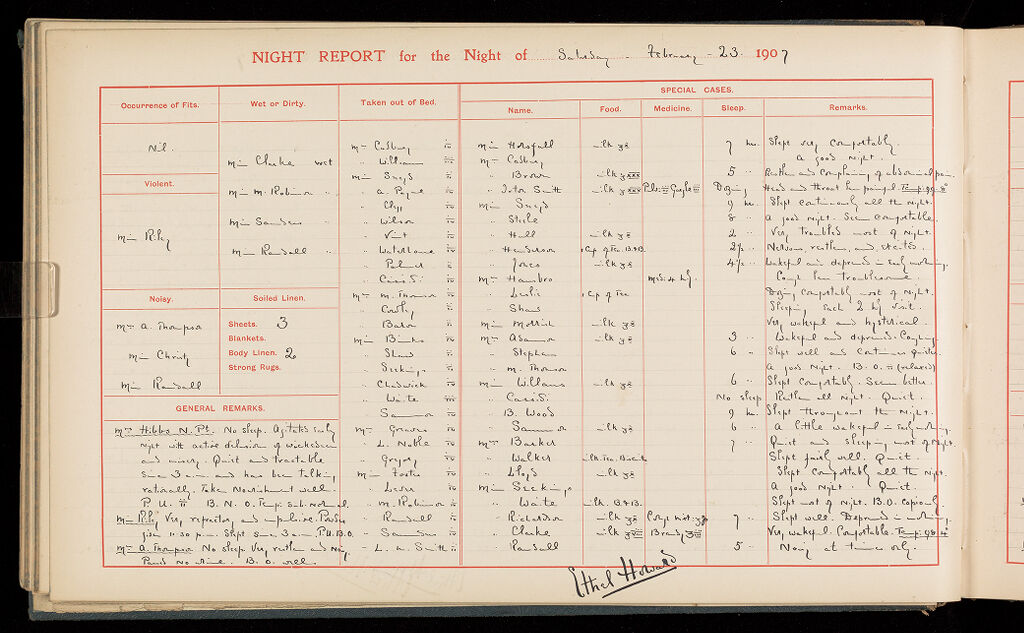 NIGHT REPORT for the Night of Saturday - February - 23. 1907
SPECIAL CASES.
Occurrence of Fits. Wet or Dirty. Taken out of Bed. Name. Food. Medicine. Sleep. Remarks.
Nil.
Miss Clarke wet
Violent.
Miss M. Robinson "
Miss Riley
Miss Sanders "
Miss Randall "
Noisy. Soiled Linen.
Mrs A. Thompson
Sheets. 3
Blankets.
Miss Christy
Body Linen. 2
Strong Rugs.
Miss Randall
Mrs Cadbury
" Williams
Miss Sneyd
" A. Payne
" Clapp
" Wilson
" Vint
" Waterhouse
" Palmer
Mrs M. Thomson
" Bacon
Miss Binks
" Shaw
" Seckings
" Chadwick
" Waite
Mrs Graves
" L. Noble
" Gregory
Miss Foster
" Lever
" M. Robinson
" Randall
" Sanders
" L. M. Smith
Miss Horsfall milk 7 hrs. Slept very comfortably.
Mrs Cadbury A good night.
" Brown milk 5 " Restless and complaining of abdominal pain.
" Smith milk Dozing Head and throat less painful. Temp. 99.8
Miss Sneyd 9 hrs. Slept continuously all the night.
" Steele 8 " A good night. Seems comfortable.
" Hall milk 2 " Very troubled most of night.
" Henderson 1 Cup of Tea. B & B. 2½ " Nervous, restless, and excited.
" Jones milk 4½ " Wakeful and depressed in early morning.
Mrs Hambro Cough less troublesome.
" Leslie 1 Cup of Tea Dozing comfortably most of night.
" Shaw Sleeping each 2 hly visit.
Miss Merrick milk Very wakeful and hysterical.
Mrs Adamson milk 3 " Wakeful and depressed. Coughing
" Stephens 6 " Slept well and continues quieter.
" M. Thomson A good night. B. O. (relaxed)
Miss Williams milk 6 " Slept comfortably. Seems better.
No sleep Restless all night. Quiet.
" B. Wood 9 hrs. Slept throughout the night.
" milk 6 " A little wakeful in early morning.
Mrs Barker 7 " Quiet and sleeping most of night.
" Walker milk. Tea. Biscuits Slept fairly well. Quiet.
" Lloyd milk Slept comfortably all the night.
Miss Seckings A good night. Quiet.
" Waite milk. B & B. Slept most of night. B.O. copiously
" Richardson milk 7 " Slept well. Depressed in morning.
" Clarke milk Brandy Very wakeful. Comfortable. Temp. 98.4
" Randall 5 " Noisy at times only.
GENERAL REMARKS.
Mrs Hibbs N. Pt. No sleep. Agitated early
night with active delusions of wickedness
and misery. Quiet and tractable
since 3 a.m. and has been talking
rationally. Takes nourishment well.
P. U. B. N. O. Temp. Sub. normal.
Miss Riley Very refractory and impulsive.
given 11.30 p.m. Slept since 3 a.m. P.U. B.O.
Mrs A. Thompson No sleep. Very restless and noisy.
Passed no urine. B. O. well.
Ethel Howard